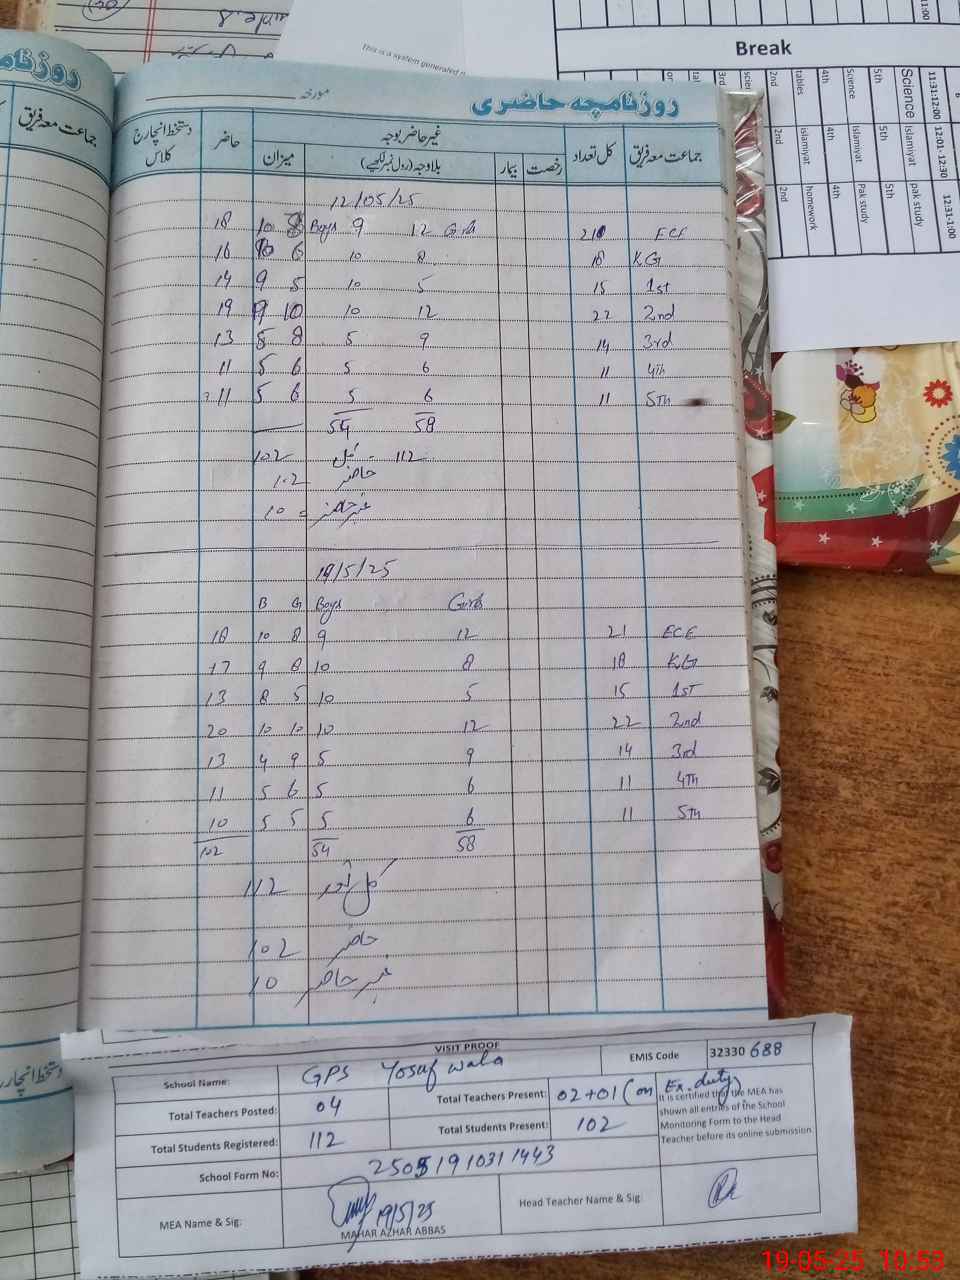 This is a system generated
Break
3rd
2nd
tables
4th
Science
5th
Science
11:31-12:00
2nd
islamiyat
4th
Islamiyat
5th
islamiyat
12:01 - 12:30
2nd
homework
4th
Pak study
5th
pak study
12:31-1:00
جماعت معہ فریق
روزنامچہ حاضری
مورخہ
جماعت معہ فریق
کل تعداد
غیر حاضر بوجہ
رخصت
بیمار
بلاوجہ (رول نمبر لکھیے)
میزان
حاضر
دستخط انچارج کلاس
12/05/25
18 10 8 Boys 9 12 Girls 21 ECE
16 10 6 10 8 18 KG
14 9 5 10 5 15 1st
19 9 10 10 12 22 2nd
13 5 8 5 9 14 3rd
11 5 6 5 6 11 4th
11 5 6 5 6 11 5th
54 58
102 کل 112
102 حاضر
10 = غیر حاضر
19/5/25
B G Boys Girls
18 10 8 9 12 21 ECE
17 9 8 10 8 18 KG
13 8 5 10 5 15 1st
20 10 10 10 12 22 2nd
13 4 9 5 9 14 3rd
11 5 6 5 6 11 4th
10 5 5 5 6 11 5th
102 54 58
112 کل
102 حاضر
10 غیر حاضر
VISIT PROOF
School Name: GPS Yosuf wala EMIS Code 32330 688
Total Teachers Posted: 04 Total Teachers Present: 02+01 (on Ex. duty)
Total Students Registered: 112 Total Students Present: 102
It is certified that the MEA has
shown all entries of the School
Monitoring Form to the Head
Teacher before its online submission.
School Form No: 250519103111443
MEA Name & Sig: 19/5/25 Head Teacher Name & Sig:
MAHAR AZHAR ABBAS
19-05-25 10:53